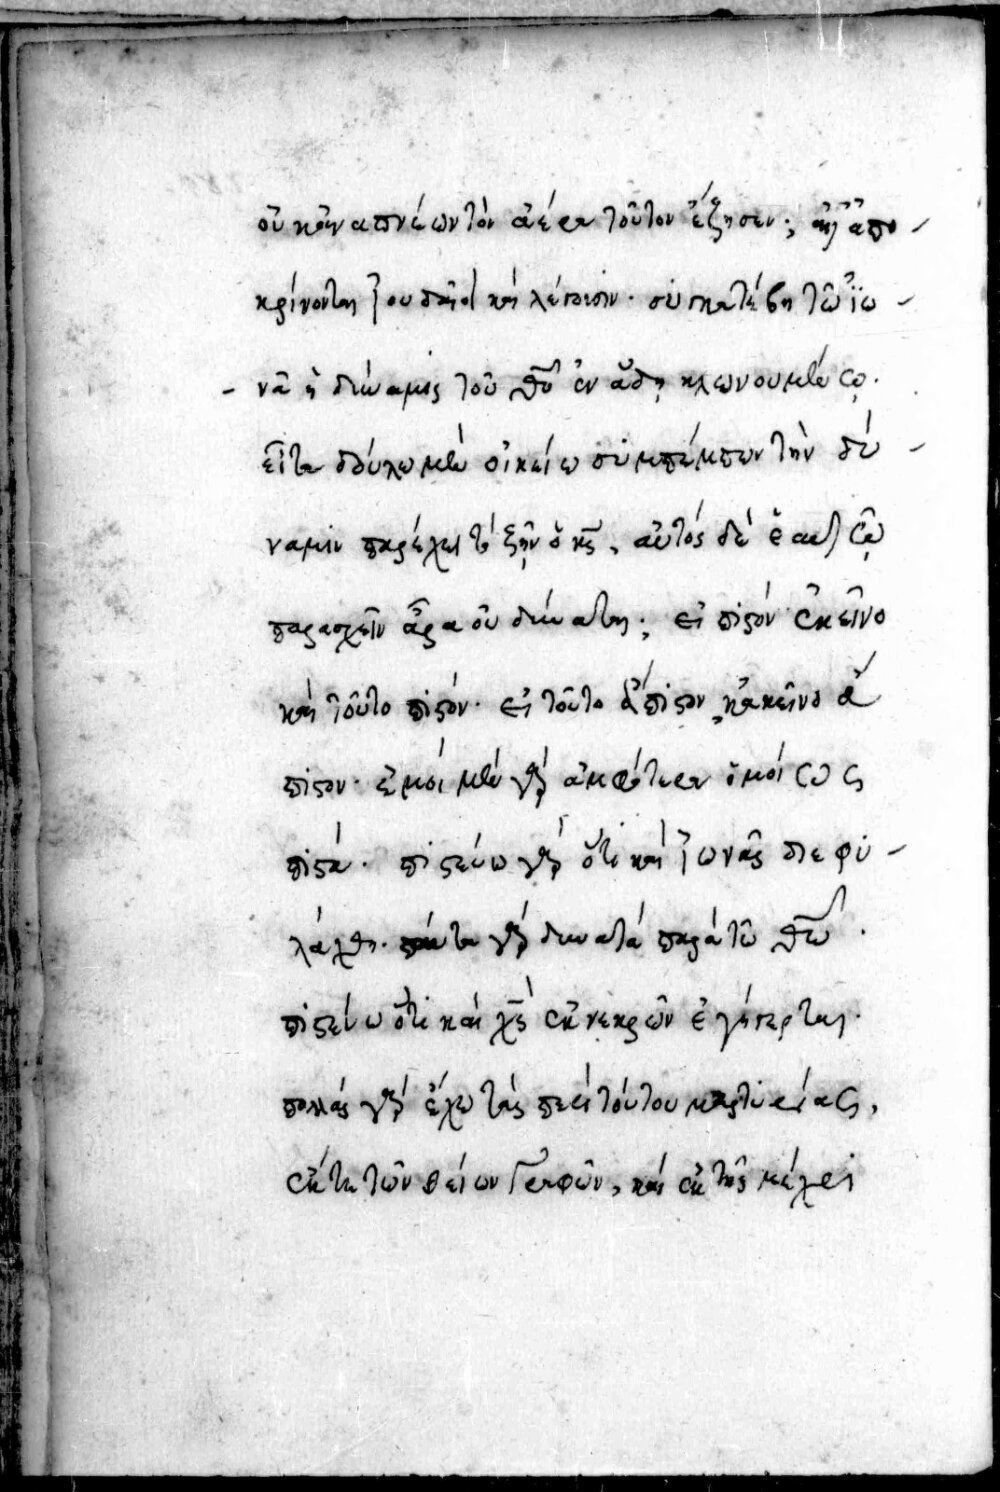 οὐκ ἀναπνέων τὸν ἀέρα τοῦτον ἔζησεν; ἀλλ' ἀπο-
κρίνονται Ἰουδαῖοι καὶ λέγουσιν· συγκατέβη τῷ Ἰω-
νᾷ ἡ δύναμις τοῦ θῦ ἐν ᾅδῃ κλωνουμένῳ.
εἶτα δούλῳ μὲν οἰκείῳ συμπέμπων τὴν δύ-
ναμιν παρέχει τὸ ζῇν ὁ κς, αὐτὸς δὲ ἑαυτῷ
παρασχεῖν ἆρα οὐ δύναται; εἰ πιστὸν ἐκεῖνο
καὶ τοῦτο πιστόν· εἰ τοῦτο ἄπιστον, κἀκεῖνο ἄ
πιστον· ἐμοὶ μὲν γὰρ ἀμφότερα ὁμοίως
πιστά· πιστεύω γὰρ ὅτι καὶ Ἰωνᾶς πεφύ-
λακται· πάντα γὰρ δυνατὰ παρὰ τῷ θῶ.
πιστεύω ὅτι καὶ χς ἐκ νεκρῶν ἐγήγερται·
πολλὰς γὰρ ἔχω τὰς περὶ τούτου μαρτυρίας,
ἔκ τε τῶν θείων Γραφῶν, καὶ ἐκ τῆς μέχρι